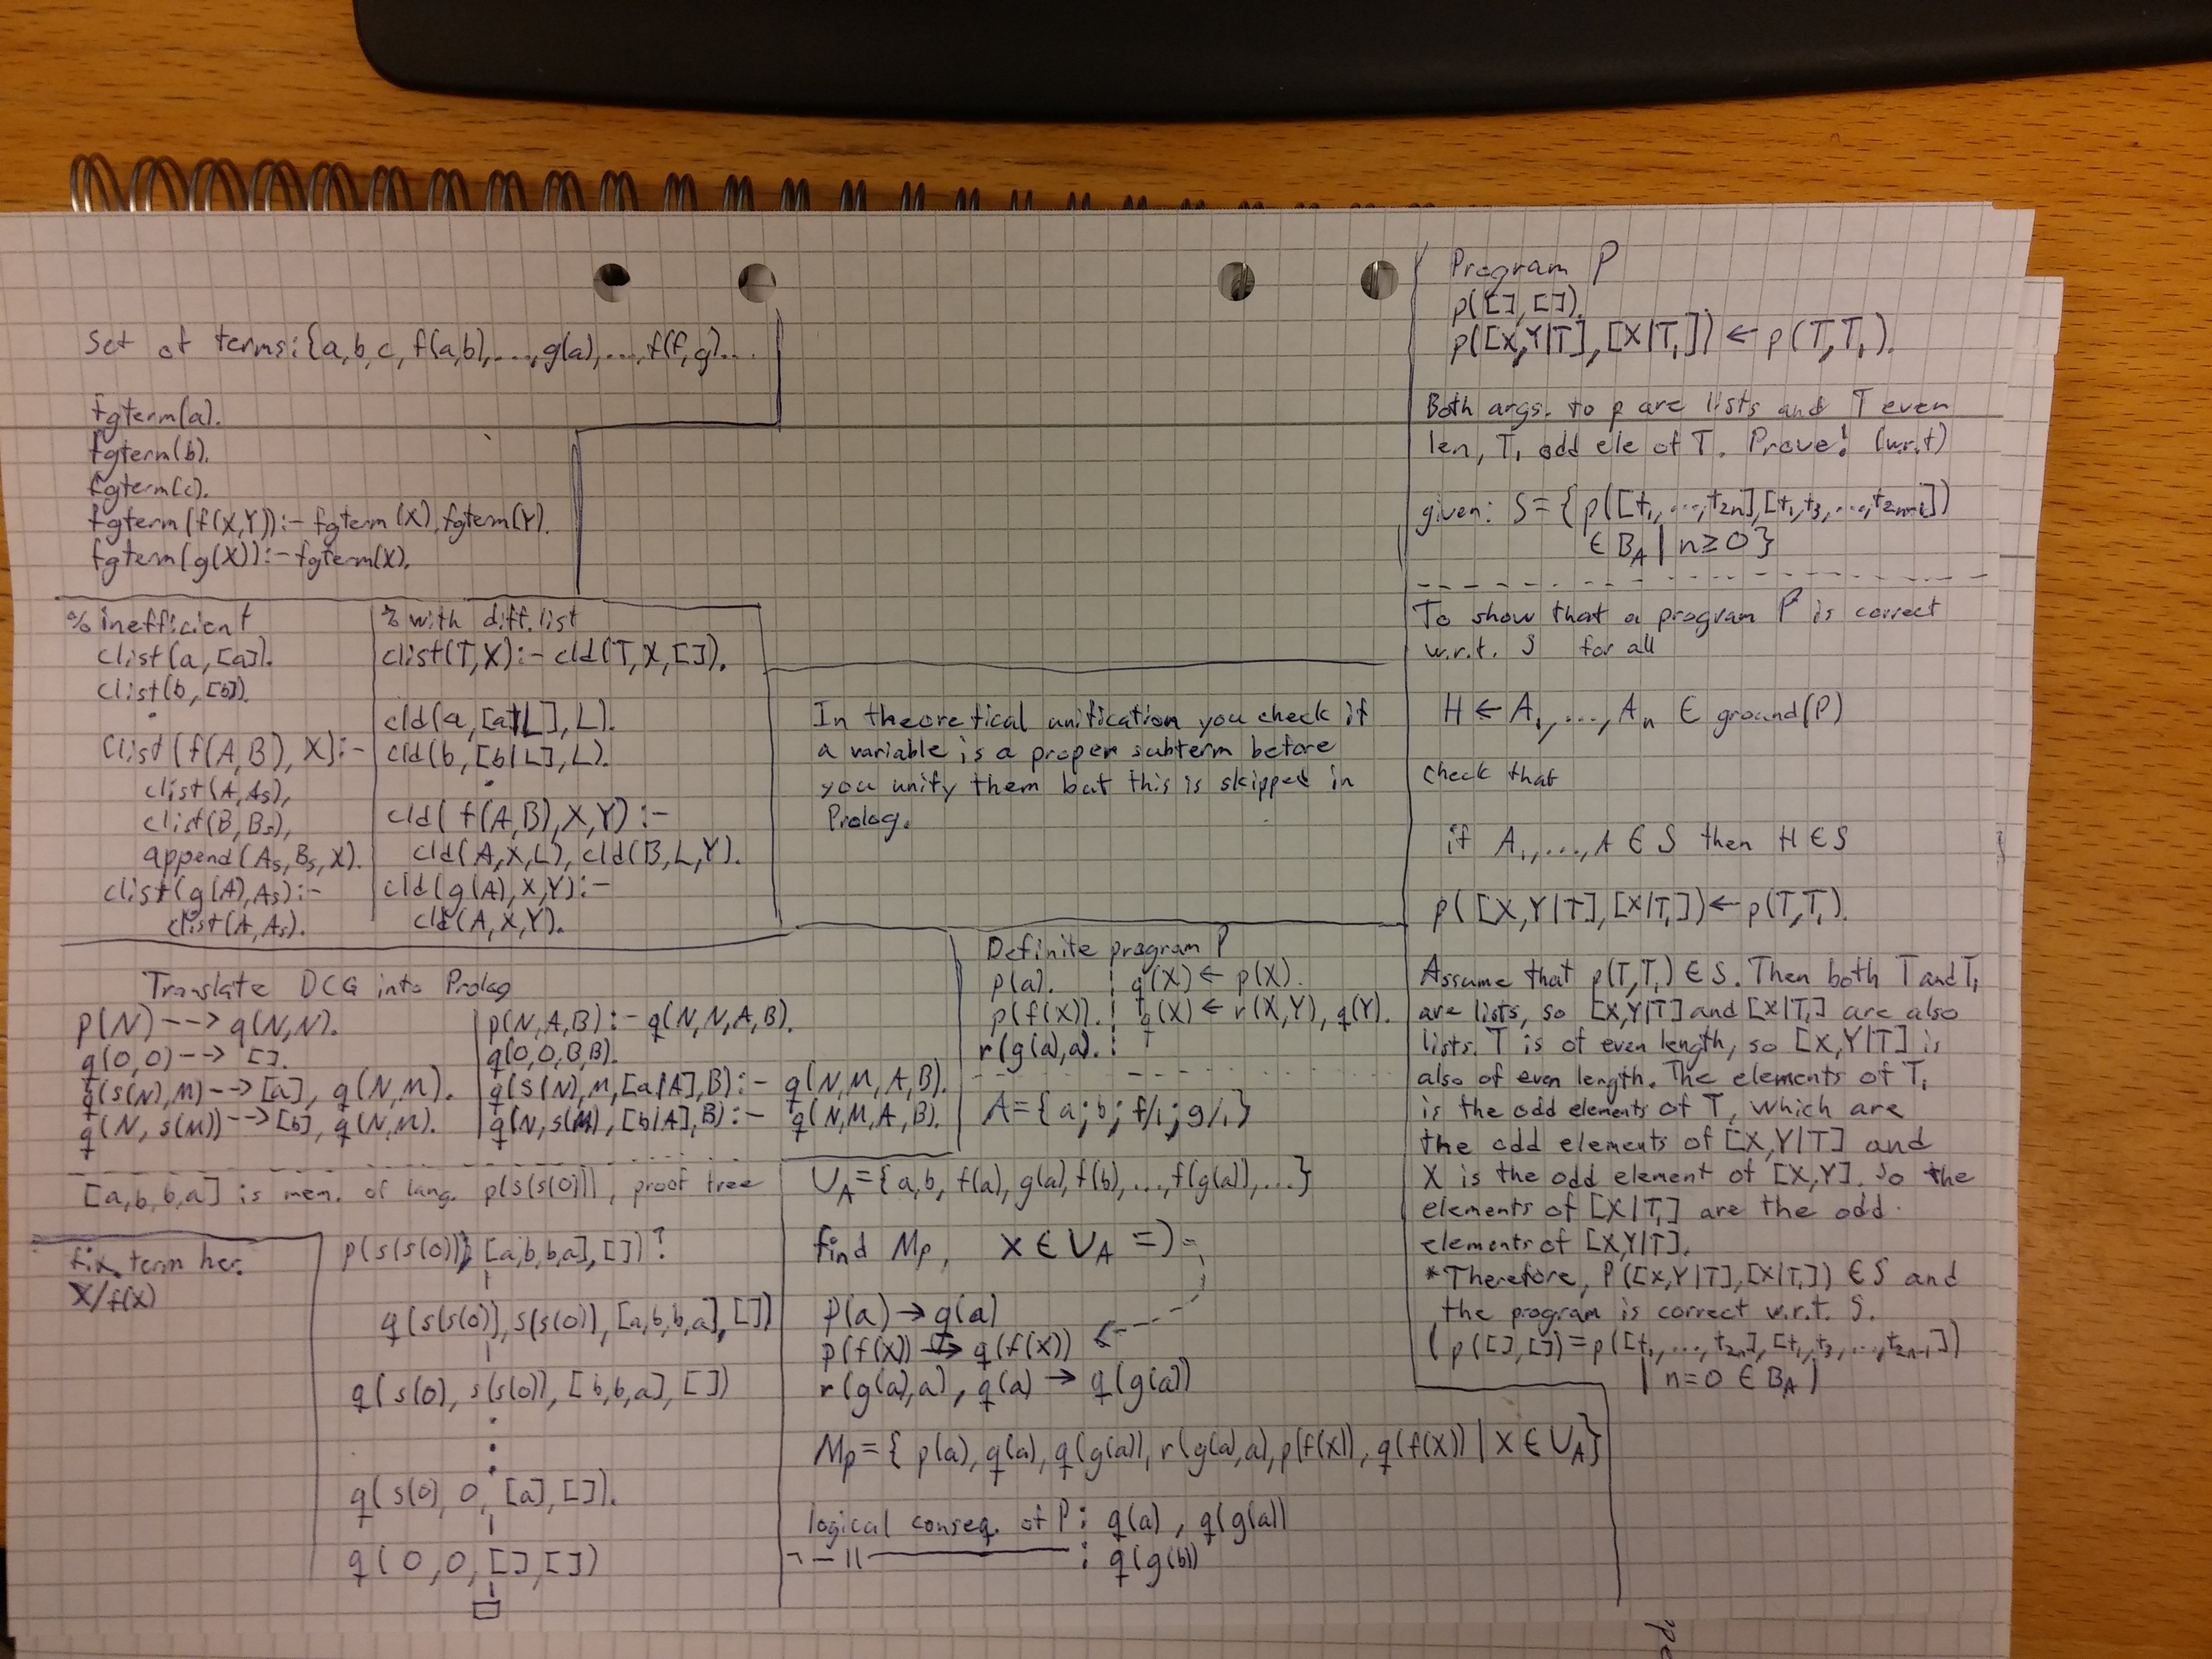 Set of terms: {a,b,c, f(a,b),...,g(a),...,f(f,g)...
fgterm(a).
fgterm(b).
fgterm(c).
fgterm(f(X,Y)):- fgterm(X), fgterm(Y).
fgterm(g(X)):- fgterm(X).
% inefficient
clist(a,[a]).
clist(b,[b]).
.
clist(f(A,B), X):-
clist(A,As),
clist(B,Bs),
append(As,Bs,X).
clist(g(A),As):-
clist(A,As).
% with diff. list
clist(T,X):- cld(T,X,[]).
cld(a,[a|L],L).
cld(b,[b|L],L).
.
cld(f(A,B),X,Y):-
cld(A,X,L), cld(B,L,Y).
cld(g(A),X,Y):-
cld(A,X,Y).
Translate DCG into Prolog
p(N) --> q(N,N).
q(0,0) --> [].
q(s(N),M) --> [a], q(N,M).
q(N, s(M)) --> [b], q(N,M).
p(N,A,B):- q(N,N,A,B).
q(0,0,B,B).
q(s(N),M,[a|A],B):- q(N,M,A,B).
q(N,s(M),[b|A],B):- q(N,M,A,B).
[a,b,b,a] is mem. of lang. p(s(s(0))), proof tree
term her.
X/f(X)
p(s(s(0)), [a,b,b,a],[])?
q(s(s(0)),s(s(0)),[a,b,b,a],[])
q(s(0),s(s(0)),[b,b,a],[])
q(s(0),0,[a],[]).
q(0,0,[],[])
In theoretical unification you check if
a variable is a proper subterm before
you unify them but this is skipped in
Prolog.
Definite program P
p(a). q(X) ← p(X).
p(f(X)). q(X) ← r(X,Y), q(Y).
r(g(a),a).
A={a;b;f/1;g/1}
U_A={a,b,f(a),g(a),f(b),...,f(g(a)),...}
find Mp, X ∈ U_A =)
p(a) → q(a)
p(f(X)) → q(f(X))
r(g(a),a), q(a) → q(g(a))
Mp={p(a),q(a),q(g(a)),r(g(a),a),p(f(X)),q(f(X)) | X ∈ U_A}
logical conseq. of P: q(a), q(g(a))
¬ —||— : q(g(b))
Program P
p([],[]).
p([X,Y|T],[X|T₁]) ← p(T,T₁).
Both args. to p are lists and T even
len, T₁ odd ele of T. Prove! (w.r.t)
given: S={p([t₁,...,t₂ₙ],[t₁,t₃,...,t₂ₙ₋₁])
∈ B_A | n≥0}
To show that a program P is correct
w.r.t. S for all
H ← A₁,...,Aₙ ∈ ground(P)
check that
if A₁,...,A ∈ S then H ∈ S
p([X,Y|T],[X|T₁]) ← p(T,T₁).
Assume that p(T,T₁) ∈ S. Then both T and T₁
are lists, so [X,Y|T] and [X|T₁] are also
lists. T is of even length, so [X,Y|T] is
also of even length. The elements of T₁
is the odd elements of T, which are
the odd elements of [X,Y|T] and
X is the odd element of [X,Y]. So the
elements of [X|T₁] are the odd
elements of [X,Y|T].
*Therefore, P([X,Y|T],[X|T₁]) ∈ S and
the program is correct w.r.t. S.
(p([],[])=p([t₁,...,t₂ₙ],[t₁,t₃,...,t₂ₙ₋₁])
| n=0 ∈ B_A)
pe